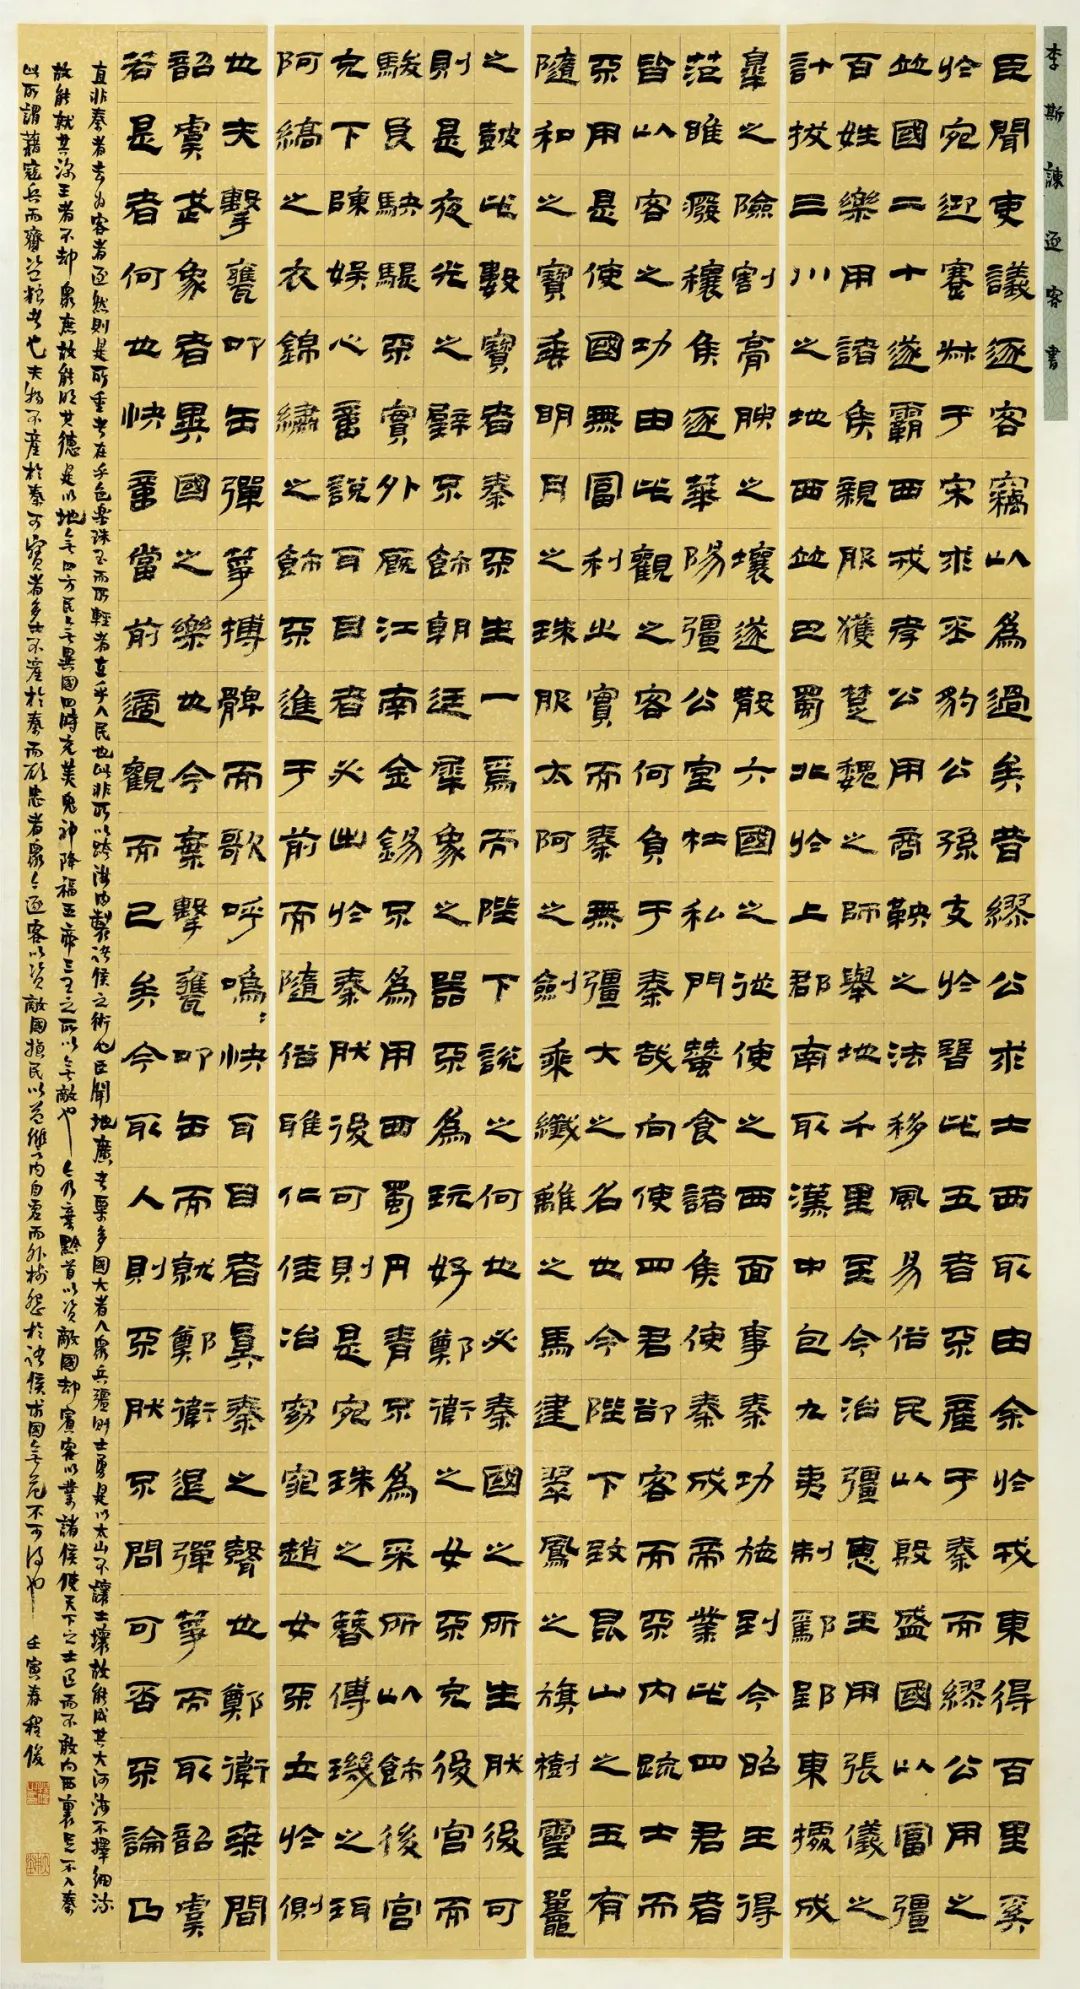 李斯諫逐客書
臣聞吏議逐客竊以為過矣昔繆公求士西取由余於戎東得百里奚
於宛迎蹇叔于宋求丕豹公孫支於晉此五者不產于秦而繆公用之
並國二十遂霸西戎孝公用商鞅之法移風易俗民以殷盛國以富彊
百姓樂用諸侯親服獲楚魏之師舉地千里至今治彊惠王用張儀之
計拔三川之地西並巴蜀北於上郡南取漢中包九夷制鄢郢東據成
皋之險割膏腴之壤遂散六國之從使之西面事秦功施到今昭王得
范雎廢穰侯逐華陽彊公室杜私門蠶食諸侯使秦成帝業此四君者
皆以客之功由此觀之客何負于秦哉向使四君卻客而不內疏士而
不用是使國無富利之實而秦無彊大之名也今陛下致昆山之玉有
隨和之寶垂明月之珠服太阿之劍乘纖離之馬建翠鳳之旗樹靈鼉
之鼓此數寶者秦不生一焉而陛下說之何也必秦國之所生然後可
則是夜光之璧不飾朝廷犀象之器不為玩好鄭衛之女不充後宮而
駿良駃騠不實外廄江南金錫不為用西蜀丹青不為采所以飾後宮
充下陳娛心意說耳目者必出於秦然後可則是宛珠之簪傅璣之珥
阿縞之衣錦繡之飾不進于前而隨俗雅化佳冶窈窕趙女不立於側
也夫擊甕叩缶彈箏搏髀而歌呼嗚嗚快耳目者真秦之聲也鄭衛桑間
韶虞武象者異國之樂也今棄擊甕叩缶而就鄭衛退彈箏而取韶虞
若是者何也快意當前適觀而已矣今取人則不然不問可否不論曲
直非秦者去為客者逐然則是所重者在乎色樂珠玉而所輕者在乎人民也此非所以跨海內製諸侯之術也臣聞地廣者粟多國大者人眾兵彊則士勇是以太山不讓土壤故能成其大河海不擇細流
故能就其深王者不却眾庶故能明其德是以地無四方民無異國四時充美鬼神降福五帝三王之所以無敵也今乃棄黔首以資敵國却賓客以業諸侯使天下之士退而不敢向西裹足不入秦
此所謂藉寇兵而齎盜糧者也夫物不產於秦可寶者多士不產於秦而願忠者眾今逐客以資敵國損民以益讎內自虛而外樹怨於諸侯求國無危不可得也 壬寅春程俊